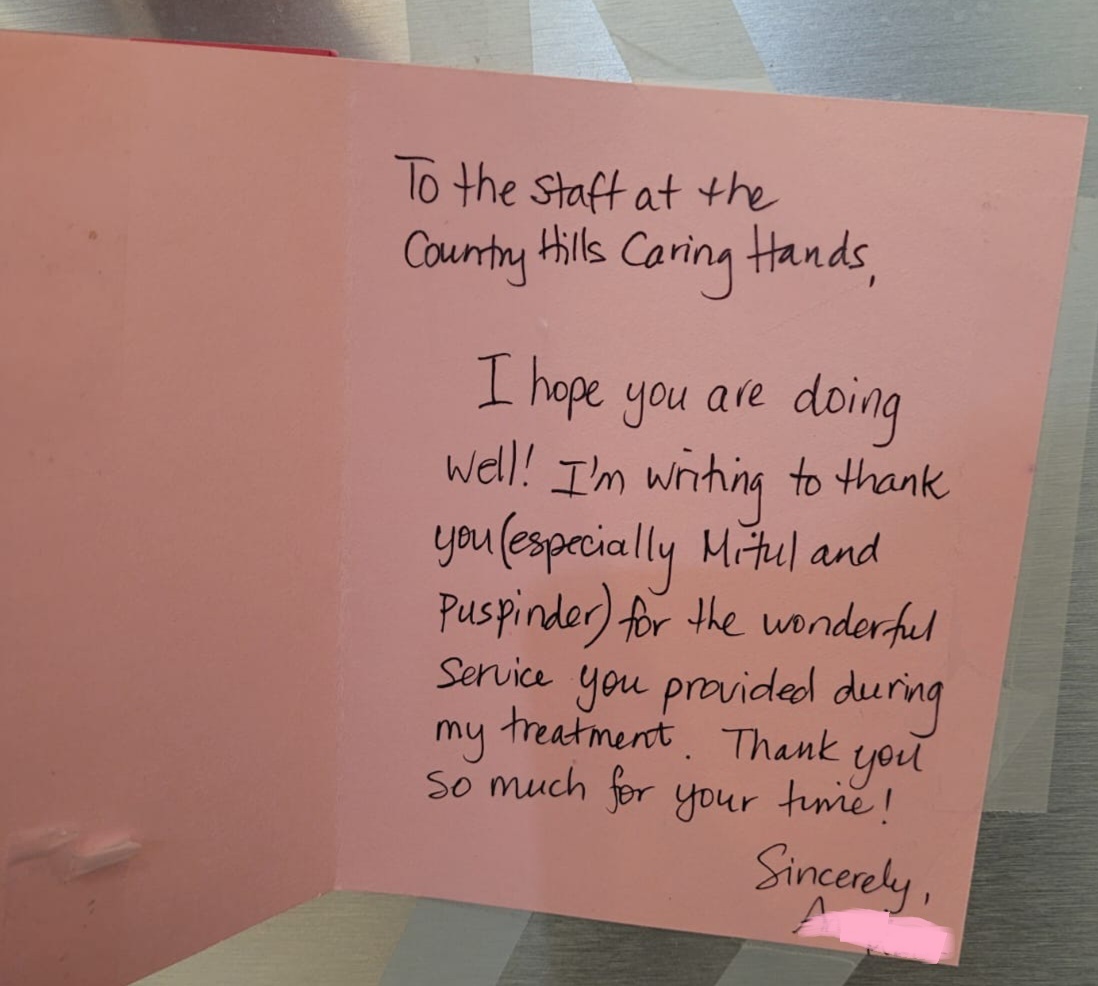 To the staff at the
Country Hills Caring Hands,
I hope you are doing
well! I'm writing to thank
you (especially Mitul and
Puspinder) for the wonderful
service you provided during
my treatment. Thank you
so much for your time!
Sincerely,